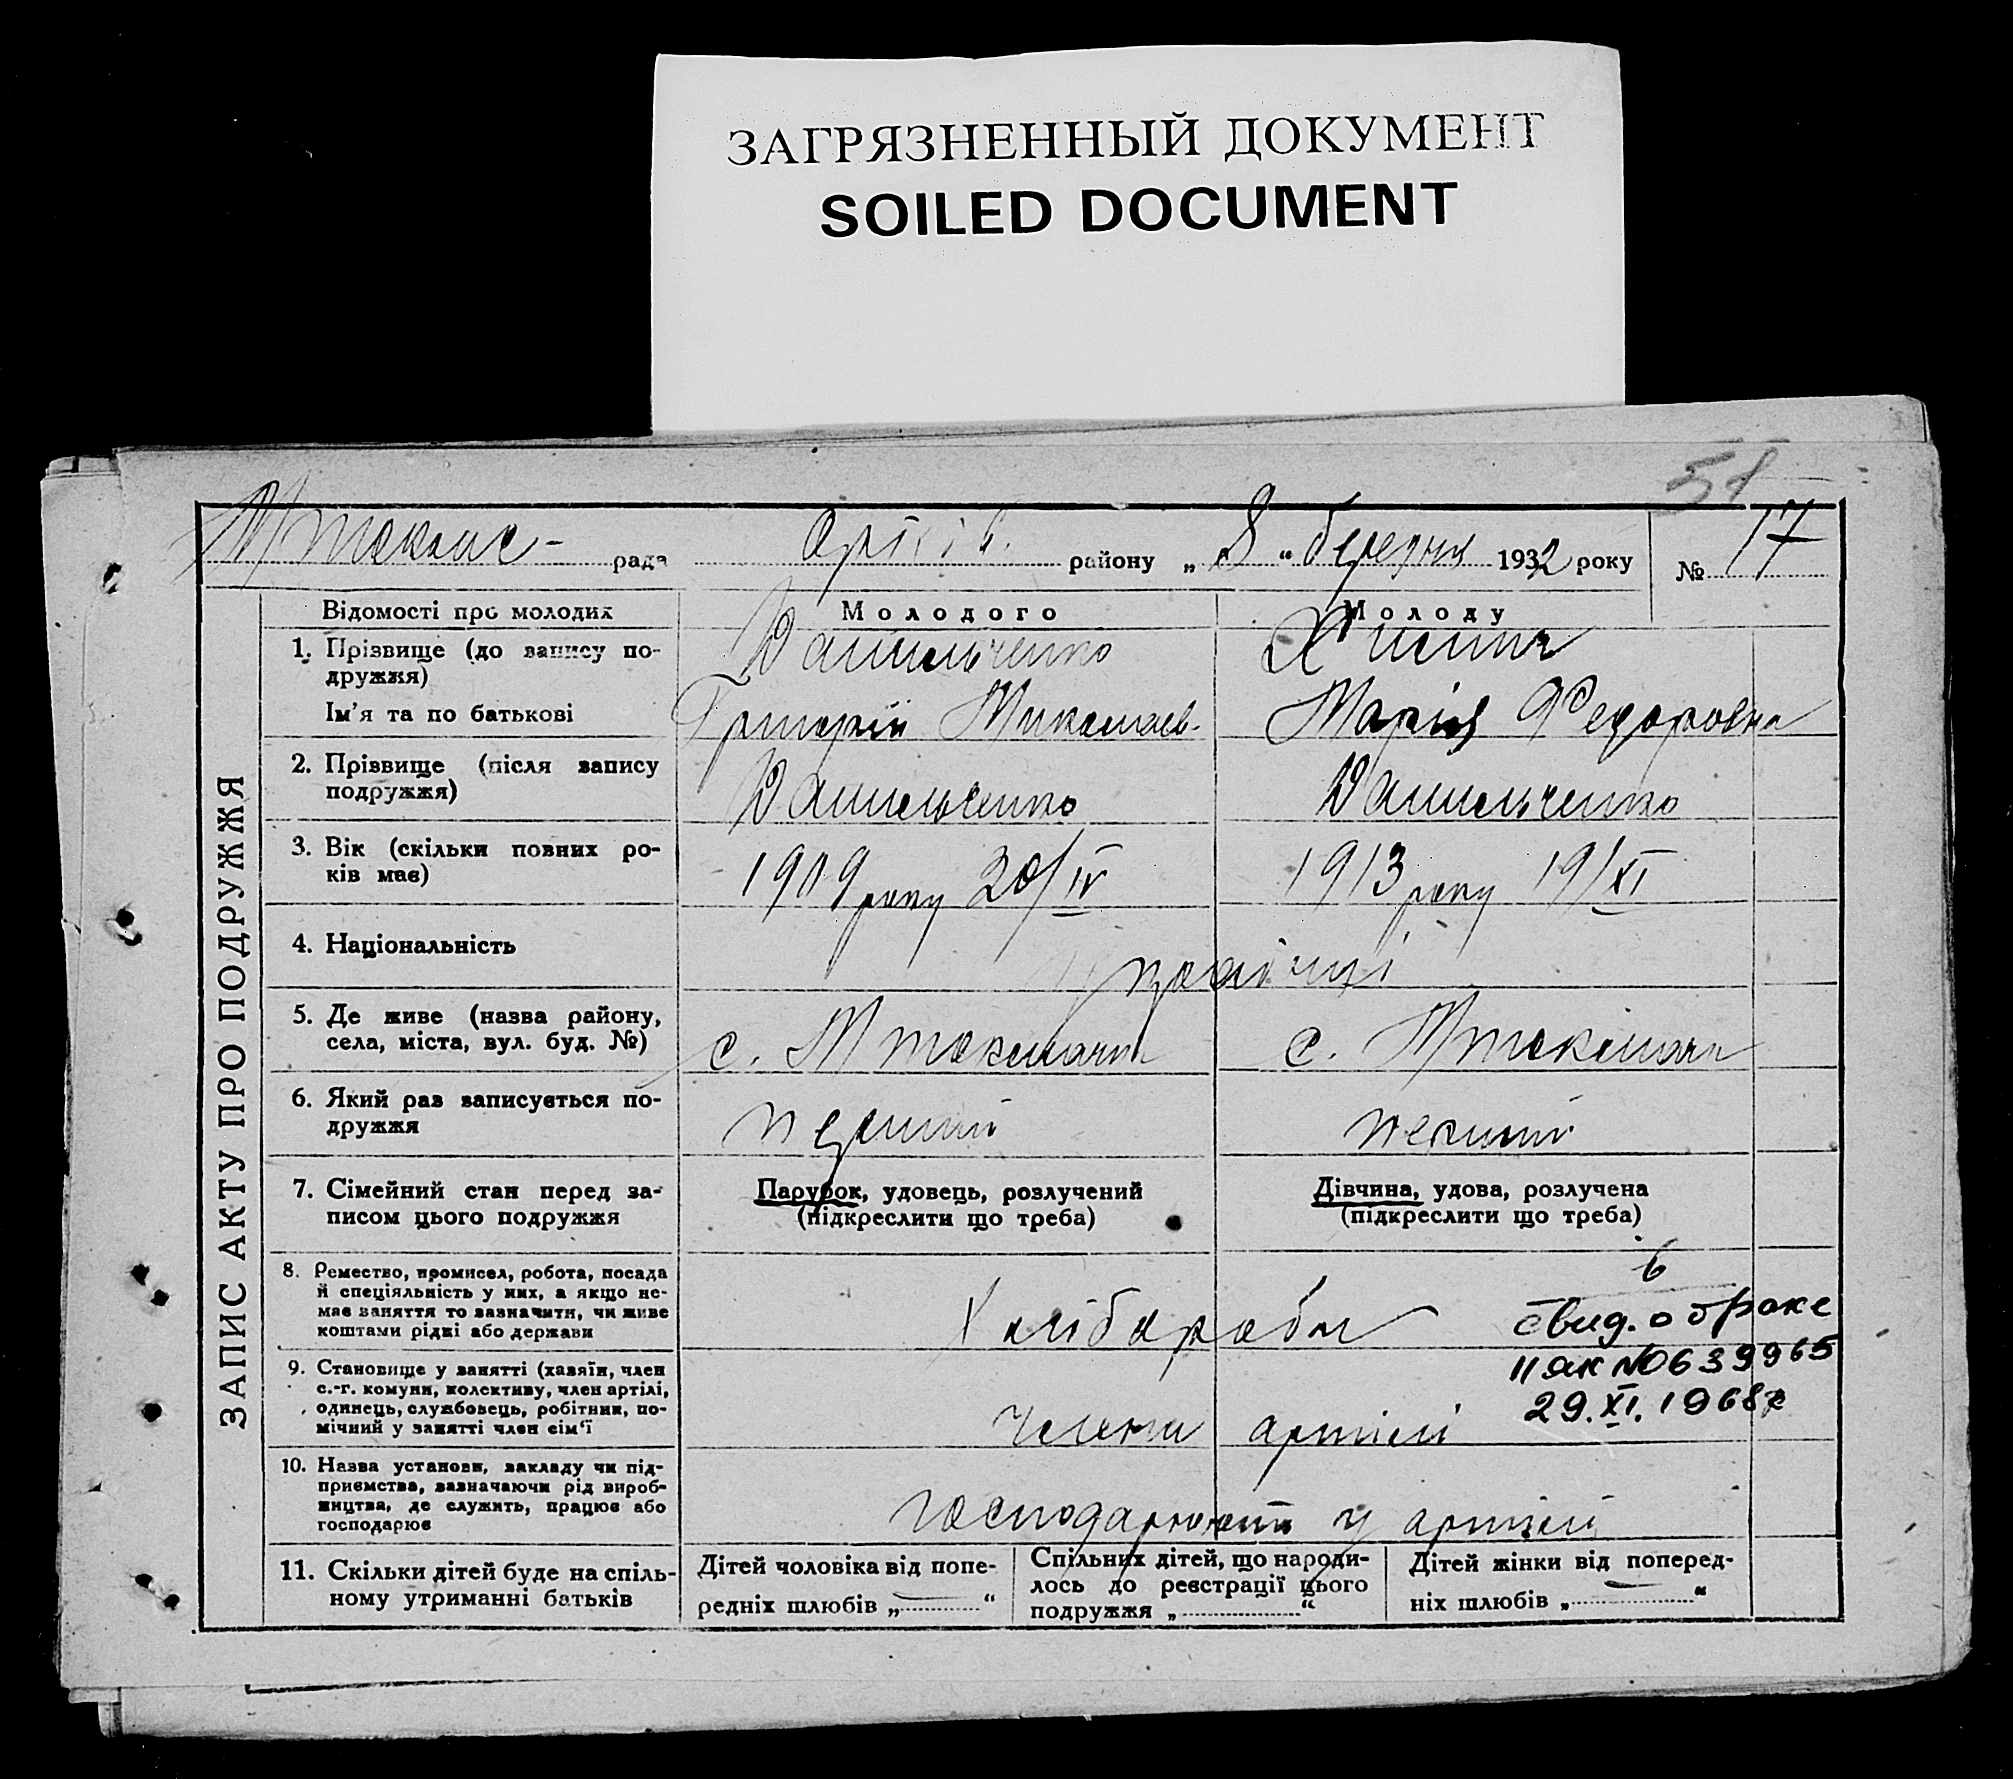 ЗАГРЯЗНЕННЫЙ ДОКУМЕНТ
SOILED DOCUMENT
58
рада району „ 8 “ березня 1932 року № 17
ЗАПИС АКТУ ПРО ПОДРУЖЖЯ
Відомості про молодих
Молодого
Молоду
1. Прізвище (до запису по-
дружжя)
Данильченко
Ім'я та по батькові
Григорій Миколаєв.
Марія Федоровна
2. Прізвище (після запису
подружжя)
Данильченко
Данильченко
3. Вік (скільки повних ро-
ків має)
1909 року 20/IV
1913 року 19/XI
4. Національність
українці
5. Де живе (назва району,
села, міста, вул. буд. №)
с.
с.
6. Який раз записується по-
дружжя
перший
перший
7. Сімейний стан перед за-
писом цього подружжя
Парубок, удовець, розлучений
(підкреслити що треба)
Дівчина, удова, розлучена
(підкреслити що треба)
8. Ремество, промисел, робота, посада
й спеціяльність у них, а якщо не-
має заняття то зазначити, чи живе
коштами рідні або держави
Хлібороби
6
свид. о браке
II ЯК № 0639965
29.XI.1968г
9. Становище у занятті (хазяїн, член
с.-г. комуни, колективу, член артілі,
одинець, службовець, робітник, по-
мічний у занятті член сім'ї
члени артілі
10. Назва установи, закладу чи під-
приємства, зазначаючи рід вироб-
ництва, де служить, працює або
господарює
господарюють у артілі
11. Скільки дітей буде на спіль-
ному утриманні батьків
Дітей чоловіка від попе-
редніх шлюбів „ — “
Спільних дітей, що народи-
лось до реєстрації цього
подружжя „ “
Дітей жінки від поперед-
ніх шлюбів „ — “